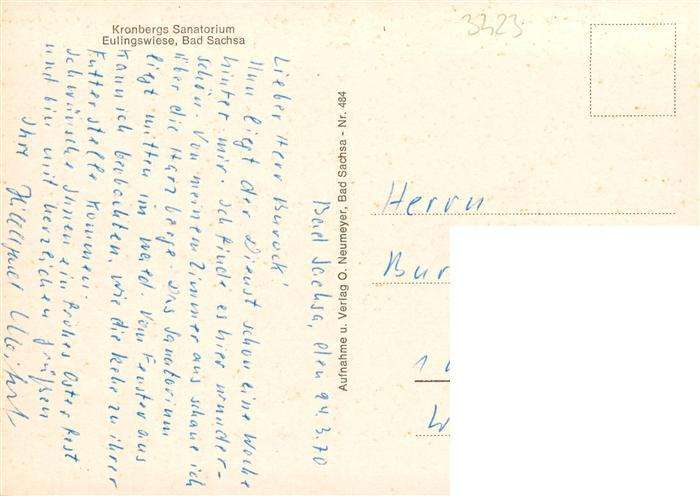 Kronbergs Sanatorium
Eulingswiese, Bad Sachsa
3423
Bad Sachsa, den 24.3.70
Lieber Herr Burock!
Nun liegt der Dienst schon eine Woche
hinter mir. Ich finde es hier wunder-
schön. Von meinem Zimmer aus schaue ich
über die Harzberge. Das Sanatorium
liegt mitten im Wald. Vom Fenster aus
kann ich beobachten, wie die Rehe zu ihrer
Futterstelle kommen.
Ich wünsche Ihnen ein frohes Osterfest
und bin mit herzlichen Grüßen
Ihre Hildegard
Aufnahme u. Verlag O. Neumeyer, Bad Sachsa - Nr. 484
Herrn
Bur
1